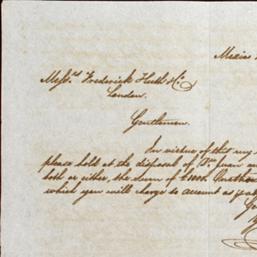 Mexico
Messrs Frederick Huth & Co
London.
Gentlemen.
In virtue of this my
please hold at the disposal of
both or either, the sum of
which you will charge to account as